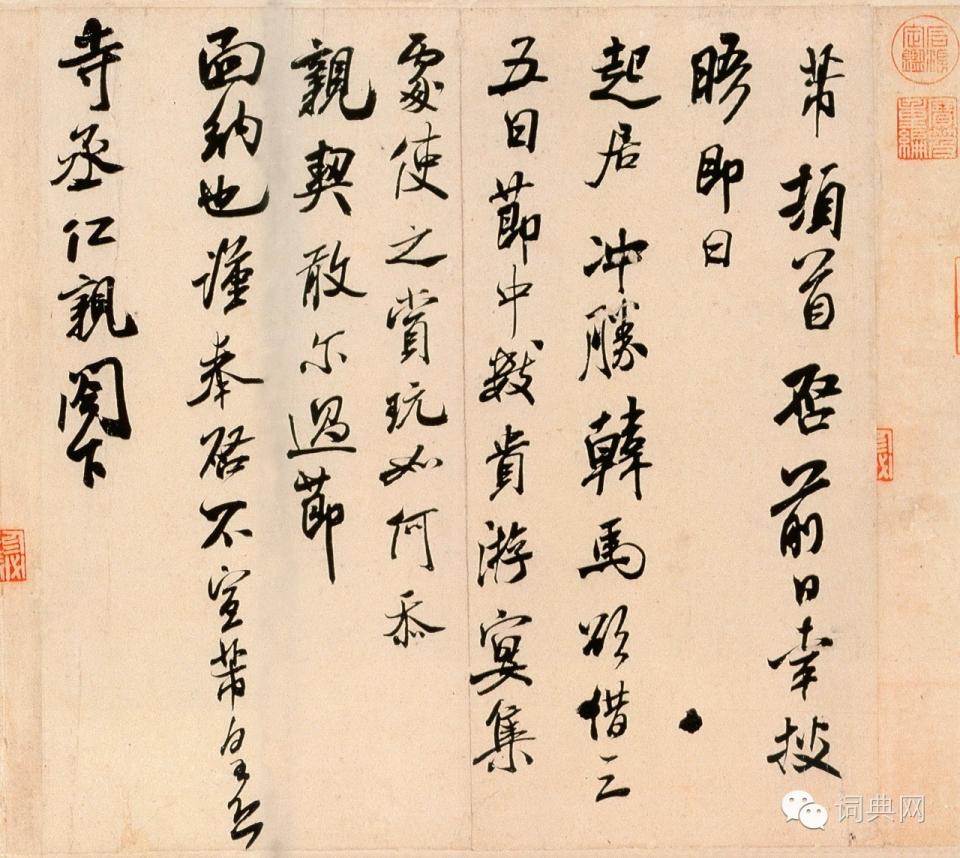 石渠定鑑
寶笈重編
芾頓首啓前日幸披
晤即日
起居冲勝韓馬欲借三
五日節中數貴游宴集
處使之賞玩如何忝
親契敢尔過節
面納也謹奉啓不宣芾皇恐
寺丞仁親閣下
词典网